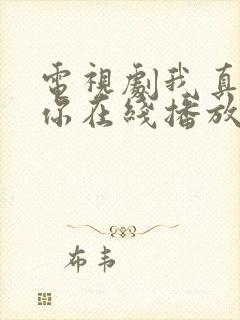 電視劇我真
你在綫播放
布韦